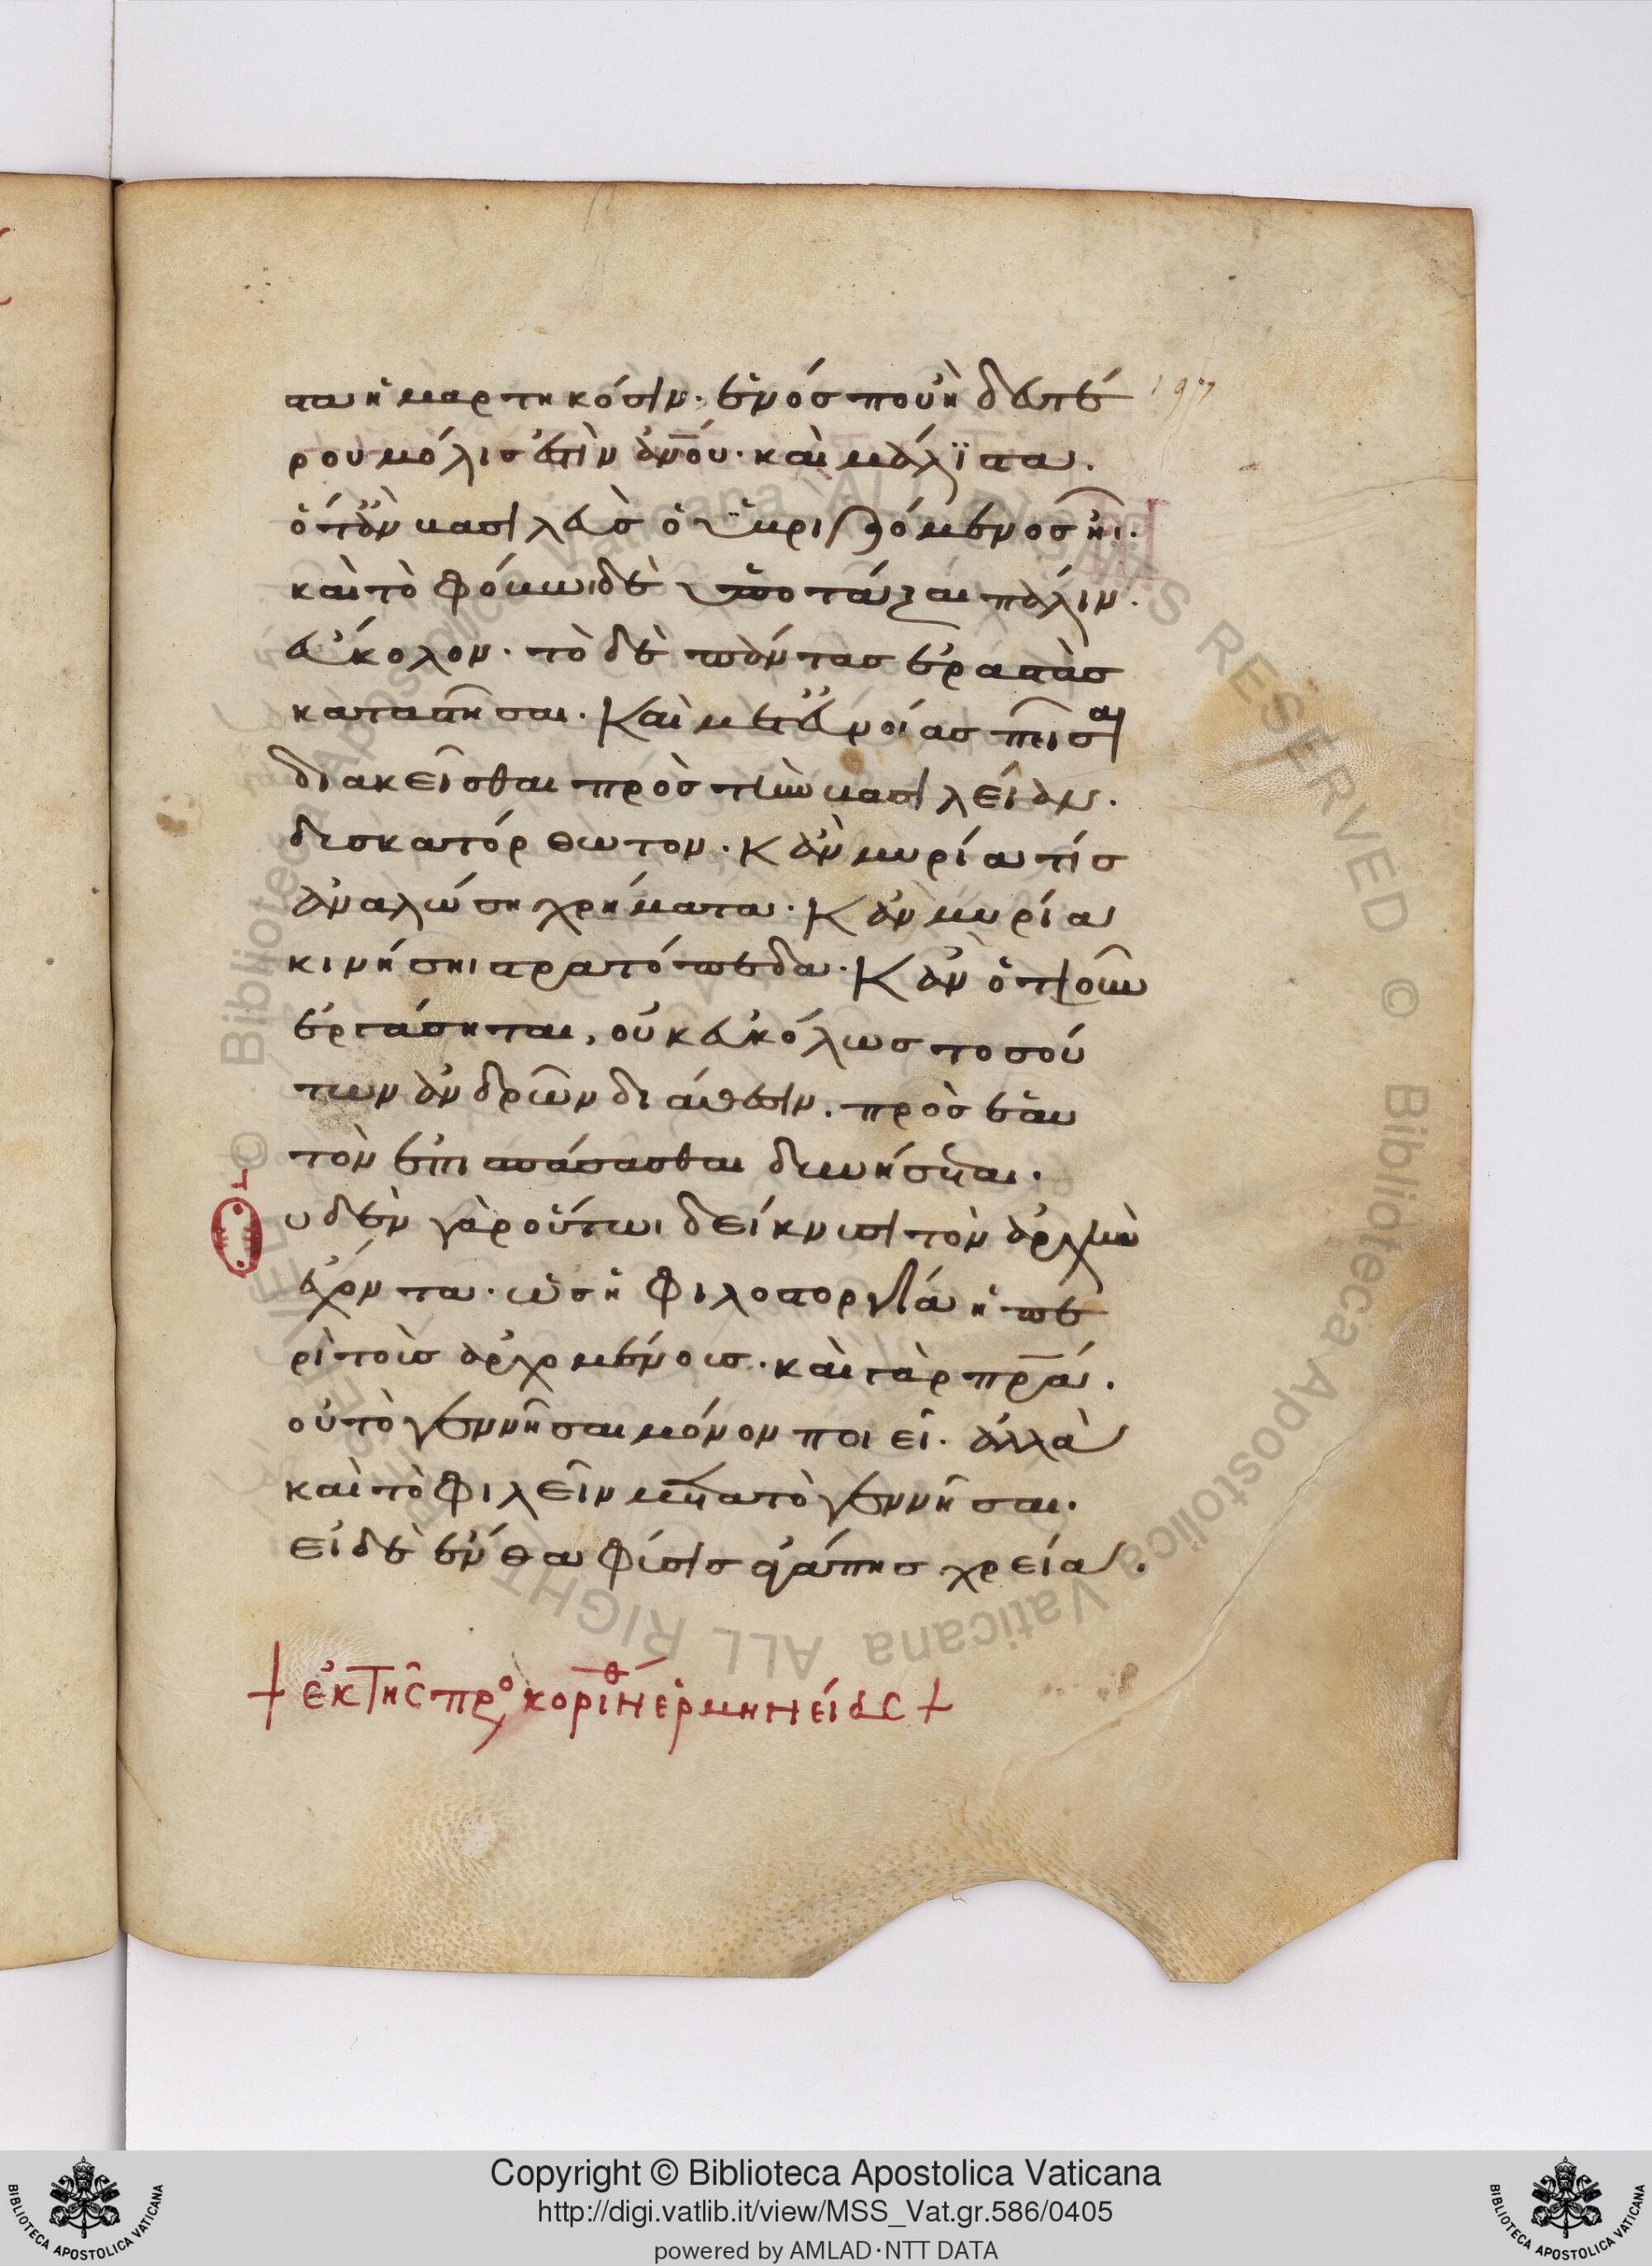 τα ἡμαρτηκόσιν. ἑνός που ἢ δευτέ
ρου μόλις ἐστὶν ἀν̅ου. καὶ μάλιστα.
ὁτὰν βασιλεὺς ὁ ὑβριζόμενος ἦι.
καὶ τὸ φόβωι δὲ ὑποτάξαι πόλιν.
εὔκολον. τὸ δὲ πάντας ἐραστὰς
καταστῆσαι. καὶ μετ εὐνοίας πεῖσαι
διακεῖσθαι πρὸς τὴν βασιλείαν.
δυσκατόρθωτον. κἂν μυρία τίς
ἀναλώσῃ χρήματα. κἂν μυρία
κινήσηι στρατόπεδα. κἂν ὁτιοῦν
ἐργάσηται, οὐκ εὐκόλως τοσού
των ἀνδρῶν διάθεσιν. πρὸς ἑαυ
τὸν ἐπισπάσασθαι δυνήσεται.
Οὐδὲν γὰρ οὕτωι δείκνυσι τὸν ἀρχὴν
ἔχοντα. ὡς ἡ φιλοστοργία ἡ πε
ρὶ τοῖς ἀρχομένοις. καὶ γὰρ πρ̅α.
οὐ τὸ γεννῆσαι μόνον ποιεῖ. ἀλλὰ
καὶ τὸ φιλεῖν μετὰ τὸ γεννῆσαι.
εἰ δὲ ἔνθα φύσις ἀγάπης χρεία.
+ ἐκ τῆς προ κοριθν ἑρμηνείας +
197
Copyright © Biblioteca Apostolica Vaticana
http://digi.vatlib.it/view/MSS_Vat.gr.586/0405
powered by AMLAD·NTT DATA